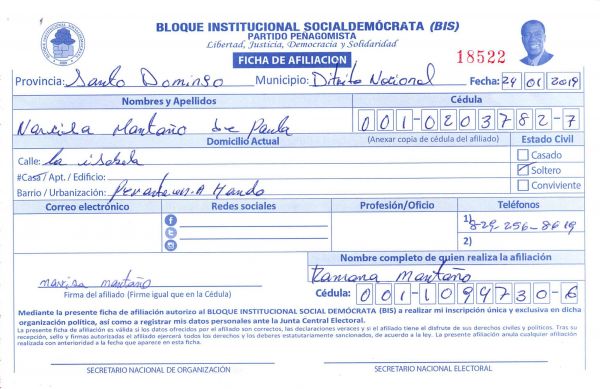 BLOQUE INSTITUCIONAL SOCIALDEMÓCRATA (BIS)
PARTIDO PEÑAGOMISTA
Libertad, Justicia, Democracia y Solidaridad
FICHA DE AFILIACION
18522
Provincia: Santo Domingo Municipio: Ditrito Nacional Fecha: 24 01 2019
Nombres y Apellidos Cédula
Narcisa Montaño de Paula 001-0203782-7
Domicilio Actual (Anexar copia de cédula del afiliado) Estado Civil
Calle: la isabela
Casado
#Casa / Apt. / Edificio:
Soltero
Barrio / Urbanización:
Conviviente
Correo electrónico Redes sociales Profesión/Oficio Teléfonos
1) 829-256-8619
2)
Nombre completo de quien realiza la afiliación
Ramona Montaño
Firma del afiliado (Firme igual que en la Cédula)
Cédula: 001-1094730-6
Mediante la presente ficha de afiliación autorizo al BLOQUE INSTITUCIONAL SOCIAL DEMÓCRATA (BIS) a realizar mi inscripción única y exclusiva en dicha
organización política, así como a registrar mis datos personales ante la Junta Central Electoral.
La presente ficha de afiliación es válida si los datos ofrecidos por el afiliado son correctos, las declaraciones veraces y si el afiliado tiene el disfrute de sus derechos civiles y políticos. Tras su
recepción, sello y firmas autorizadas el afiliado ejercerá todos los derechos y los deberes estatutariamente sancionados, de acuerdo a la ley. La presente afiliación anula cualquier afiliación
realizada con anterioridad a la fecha que aparece en esta ficha.
SECRETARIO NACIONAL DE ORGANIZACIÓN SECRETARIO NACIONAL ELECTORAL